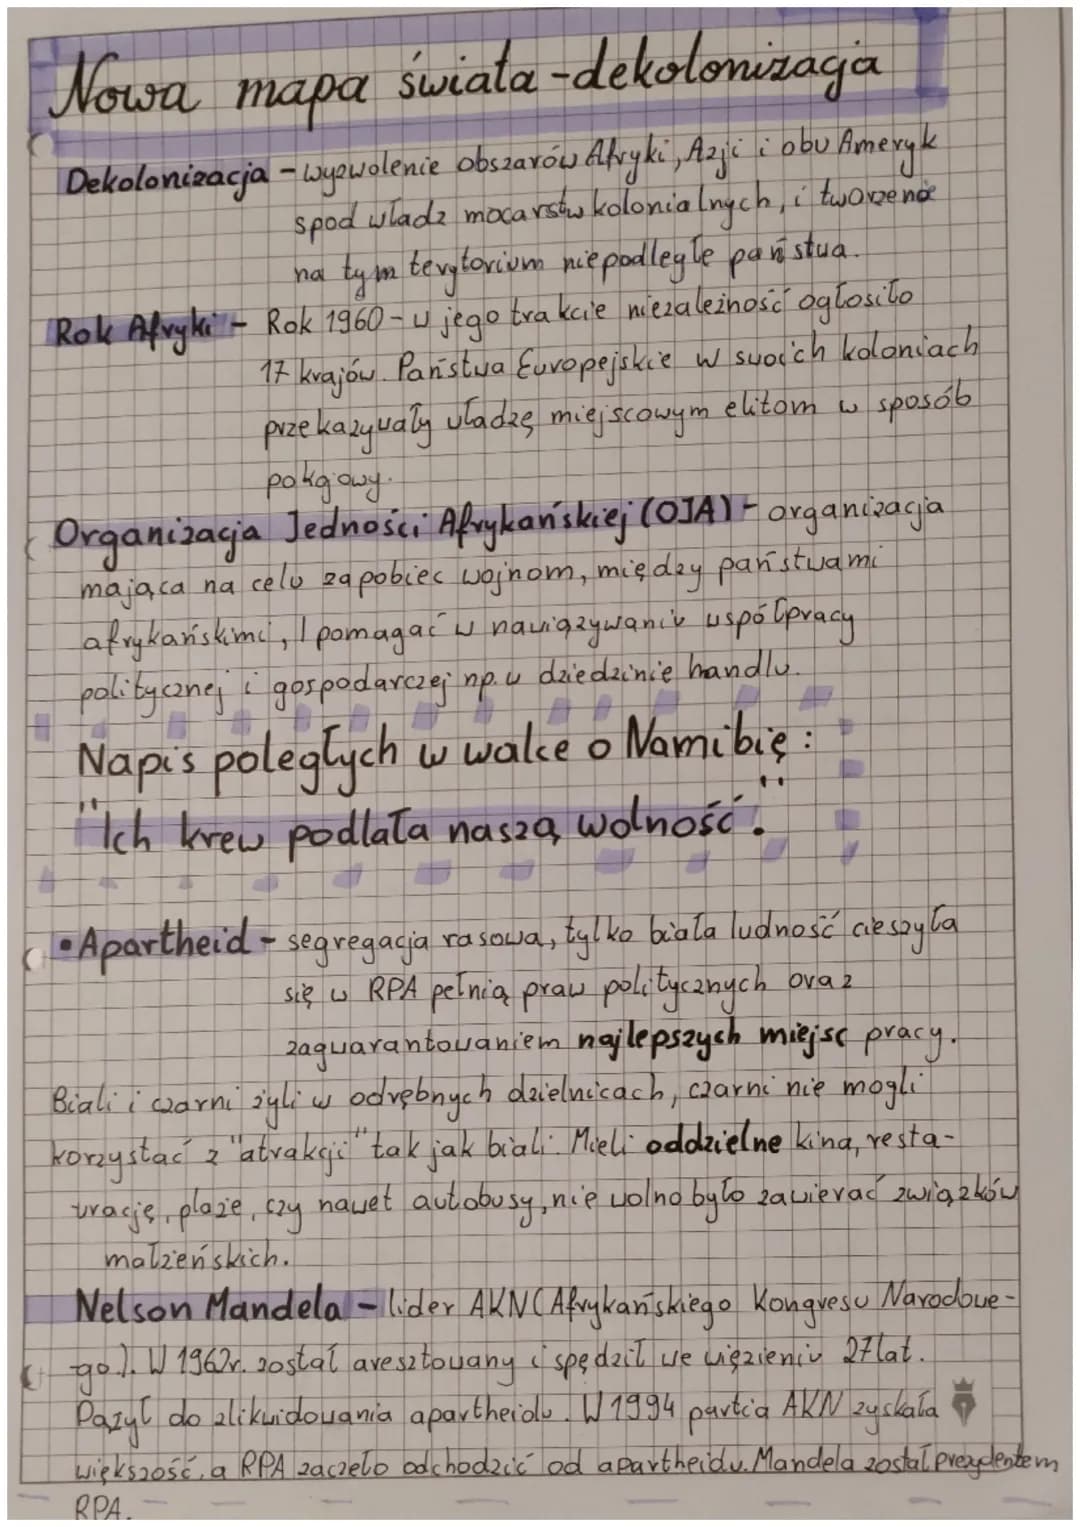 Nowa mapa świata - dekolonizacja
Dekolonizacja - wyzwolenie obszarów Afryki, Azji i obu Ameryk
spod władz mocarstw kolonialnych, i tworzenie
na tym terytorium niepodległe państwa.
Rok Afryki - Rok 1960 - w jego trakcie niezależność ogłosiło
17 krajów. Państwa Europejskie w swoich koloniach
przekazywały władzę miejscowym elitom w sposób
pokojowy.
Organizacja Jedności Afrykańskiej (OJA) - organizacja
mająca na celu zapobiec wojnom, między państwami
afrykańskimi, I pomagać w nawiązywaniu współpracy
politycznej i gospodarczej np. w dziedzinie handlu.
Napis poległych w walce o Namibię:
"Ich krew podlała naszą wolność."
• Apartheid - segregacja rasowa, tylko biała ludność cieszyła
się w RPA pełnią praw politycznych oraz
zagwarantowaniem najlepszych miejsc pracy.
Biali i czarni żyli w odrębnych dzielnicach, czarni nie mogli
korzystać z "atrakcji" tak jak biali. Mieli oddzielne kina, resta-
uracje, plaże, czy nawet autobusy, nie wolno było zawierać związków
małżeńskich.
Nelson Mandela - lider AKN (Afrykańskiego Kongresu Narodowe-
go). W 1962r. został aresztowany i spędził we więzieniu 27 lat.
Dążył do zlikwidowania apartheidu. W 1994 partia AKN zyskała
większość, a RPA zaczęło odchodzić od apartheidu. Mandela został prezydentem
RPA.